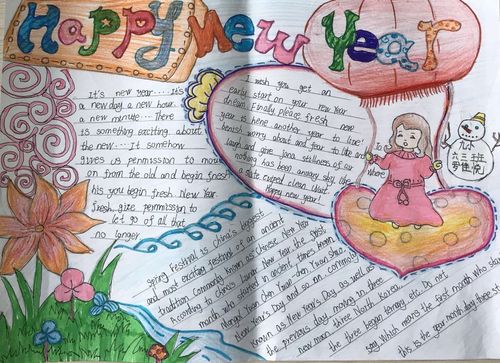 Happy New Year
It's new year.... it's
a new day a new hour
a new minute... There
is something exciting about
the new... It somehow
gives us penmission to move
on from the old and begin fresh
his you begin fresh New Year
fresh give permission to
let go of all that
no longer
I wish you get an
early start on your new Year
dream. Finally please fresh new
year is hene another year to live'
banish worry about and fear to live and
laugh and give
nothing has been
Happy new year!
spring Festival is china's biggest
and most exciting festival of an ancient
tradition Commonly known as Chinese New Year
According to China's lunar New Year the first
month. who started in ancient times known
Yuan Chen Yuan Shuo
New Year's Day and so on, commonly
known as New Year's Day as well as
the previous day money on three
new moon three North Korea,
the three began terrary etc. Do not
say Which means the first month Who star
this is the year month day three st
where
九小
六三班